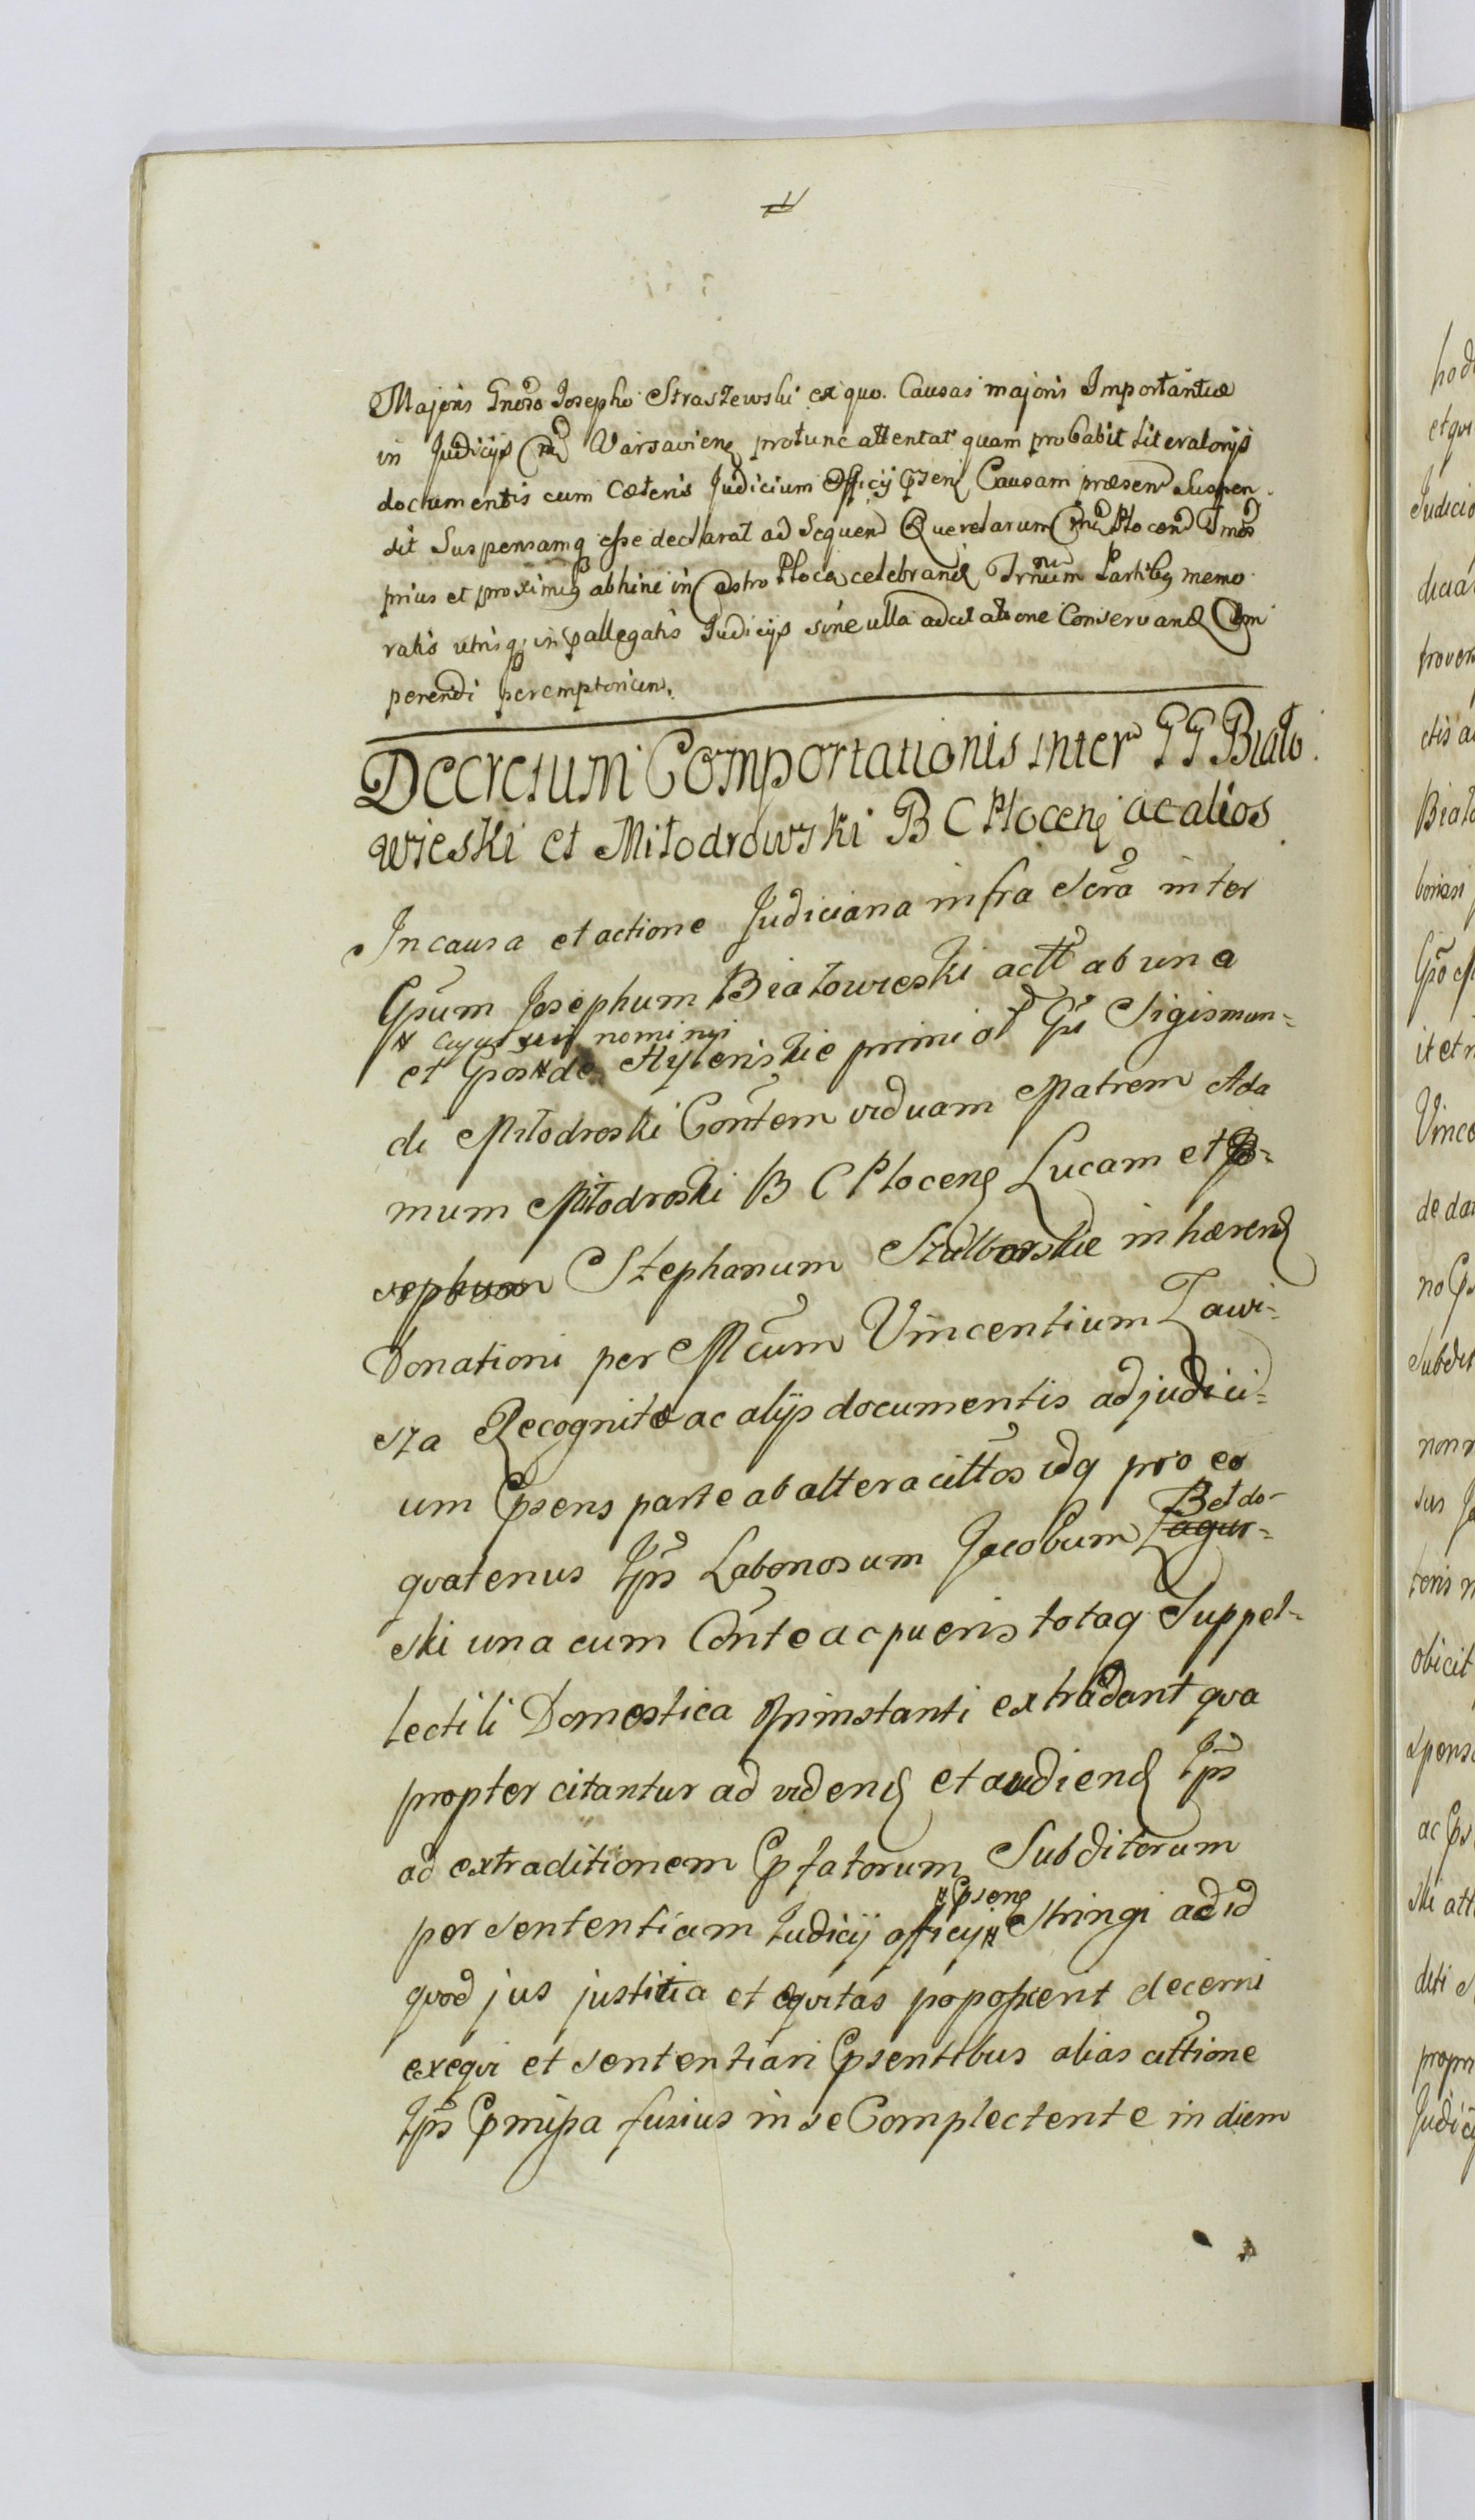 Majoris Gnoso Josepho Straszewski ex quo. Causas majoris Importantiæ
in Judicijs Varsaviens protunc attentat quam probabit Literatorijs
documentis cum Cæteris Judicium Officij Causam præsen Suspen
dit Suspensamq esse declarat ad Sequen Querelarum Plocen
prius et proximi abhinc in Castro Ploce celebrand Partibq memo
ratis utrisq in pallegatis Judicijs sine ulla Conservand Com
perendi peremptorium.
Decretum Comportationis inter GG Biało
wieski et Miłodrowski B C Plocens ac alios
In causa et actione Judiciaria infra Scra inter
Gsum Josephum Białowieski actt ab una
# cujus nominis
et Gsos # de primi ol Gsi Sigismun=
di Miłodroski Contem viduam Matrem Ada
mum Miłodroski B C Plocens Lucam et Jo=
sephum Stephanum inhærend
Donationi per Mcum Vincentium Zawi=
sza Recognitæ ac alijs documentis ad judici=
um psens parte ab altera cittos idq pro eo
Betdo-
quatenus Ips Laboriosum Jacobum Zagur=
ski una cum Conte ac pueris totaq Suppel=
lectili Domestica instanti extradant qua
propter citantur ad vidend et audiend Ips
ad extraditionem pfatorum Subditorum
# psens
per sententiam Judicij officij # Stringi ad id
quod jus justitia et æquitas popoxerit decerni
exequi et sententiari psentibus alias cittione
Ips pmissa fusius in se Complectente in diem